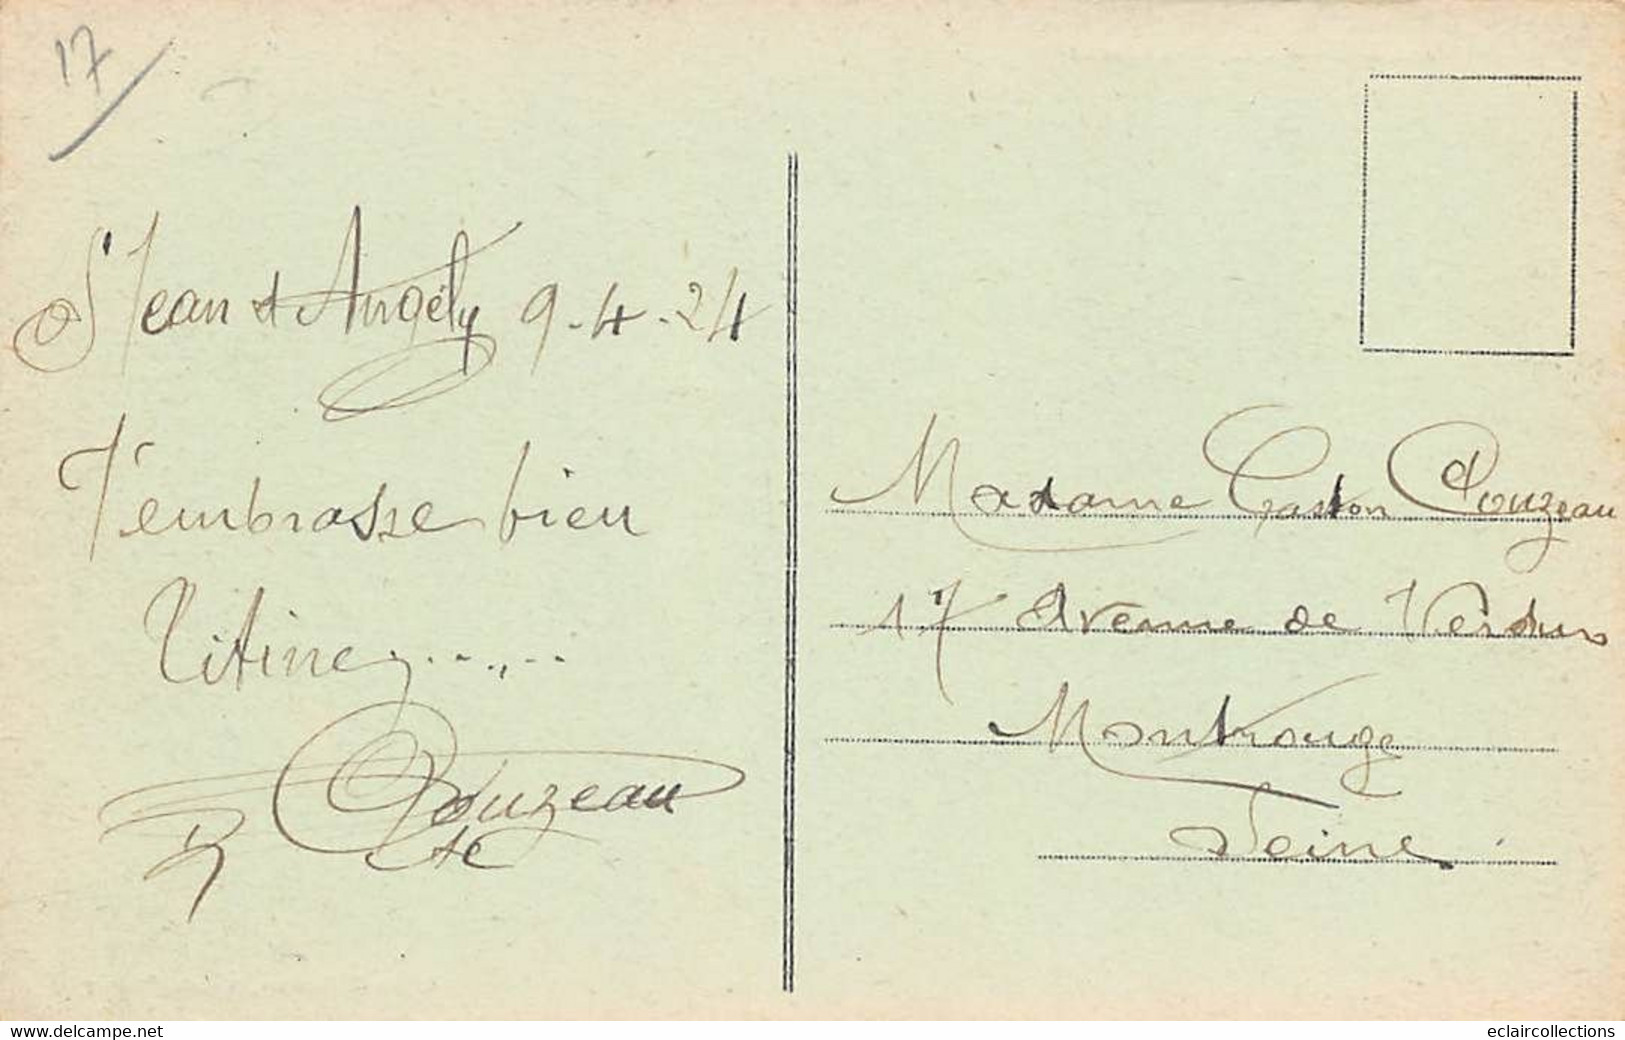 17
St Jean d'Angély 9-4-24
T'embrasse bien
Titine
Douzeau
Madame Gaston Douzeau
17 Avenue de Verdun
Montrouge
Seine
delcampe.net
eclaircollections